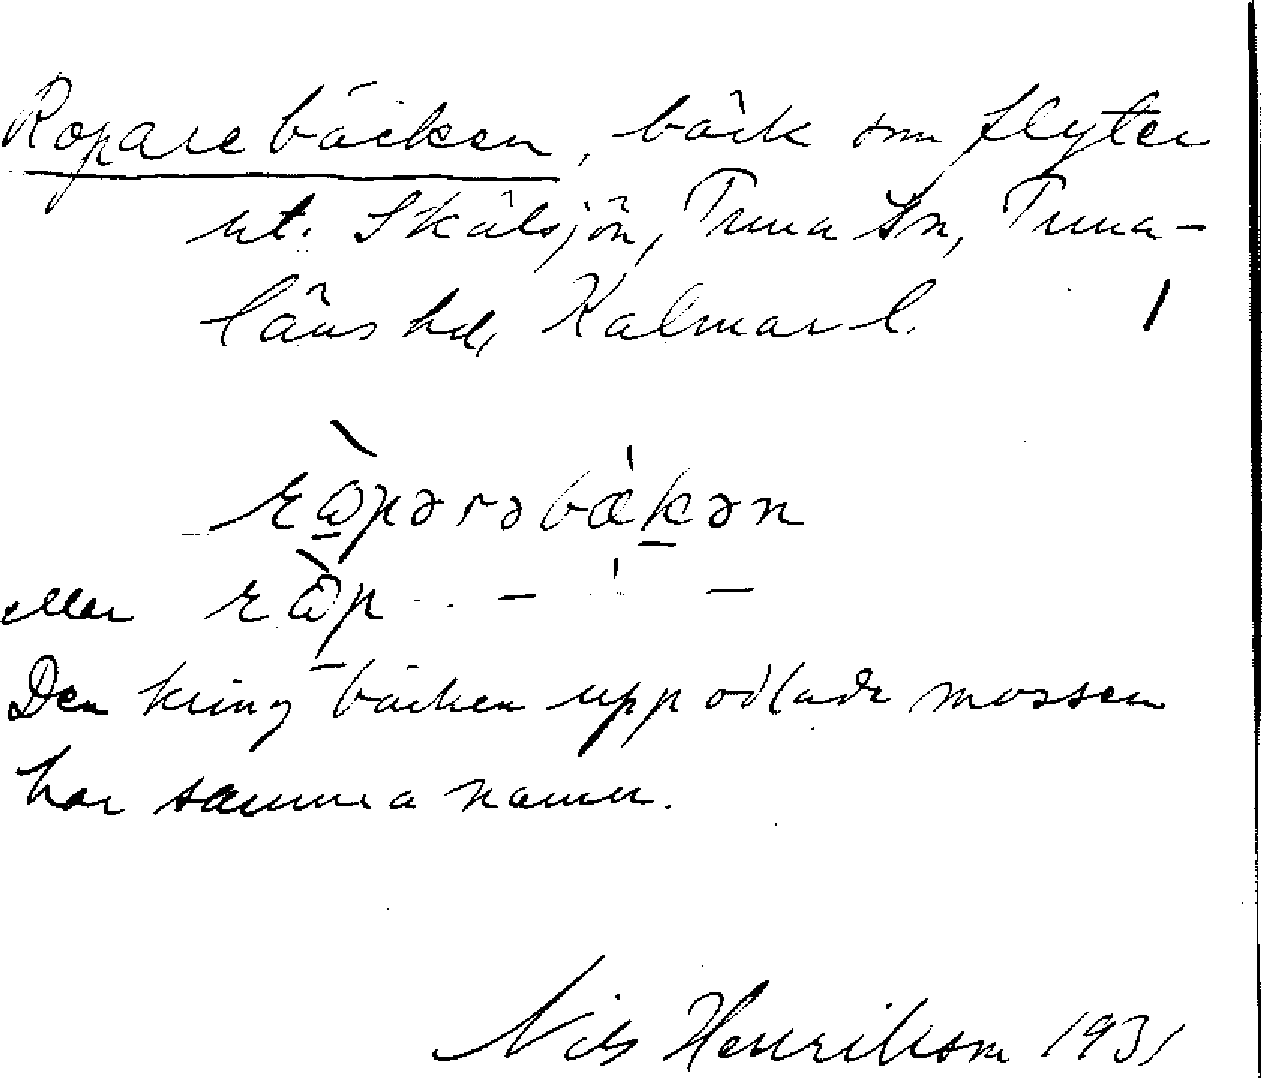 Roparebäcken, bäck som flyter
ut. Skälsjön, Tuna sn, Tuna-
läns hd, Kalmar l. 1
rɷ̀pərəbækən
eller rɷ̀p - ' -
Den kring bäcken uppodlade mossen
har samma namn.
Nils Henrikson 1931